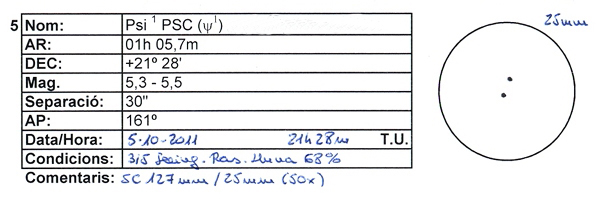 25mm
5 Nom: Psi ¹ PSC (ψ¹)
AR: 01h 05,7m
DEC: +21º 28'
Mag. 5,3 - 5,5
Separació: 30"
AP: 161º
Data/Hora: 5-10-2011 21h28m T.U.
Condicions: 3/5 Seeing. Ras. Lluna 68%
Comentaris: SC 127mm / 25mm (50x)